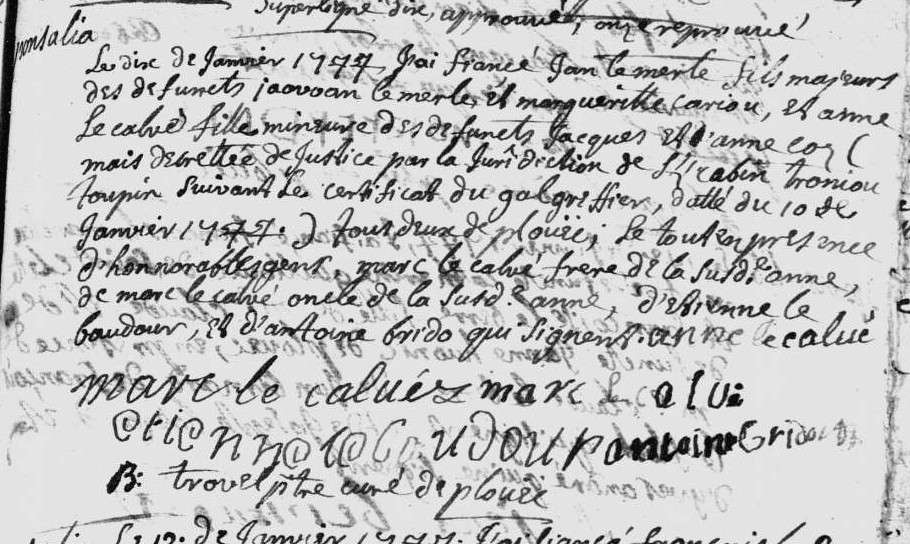 superligne dix, approuvé, onze reprouvé
sponsalia
Le dix de Janvier 1777 J'ai fiancé Jan le merle fils majeurs
des defuncts jaovoan le merle, et margueritte cariou, et anne
Le calvé fille mineure des defuncts Jacques et d'anne coz (
mais decrettée de Justice par la Jurîdiction de cabin troniou
toupin suivant le certificat du greffier, datté du 10 de
Janvier 1777.) tous deux de plouëc; Le tout en presence
d'honnorables gens, marc le calvé frere de la susde anne,
de marc le calvé oncle de la susde anne, d'Etienne le
baudour, et d'antoine brido qui signent. anne le calvé
marc le calvéz marc le calvé
etienne le baudour antoine brido
B: trovel ptre curé de plouëc
Le 12. de Janvier 1777. J'ai fiancé françois